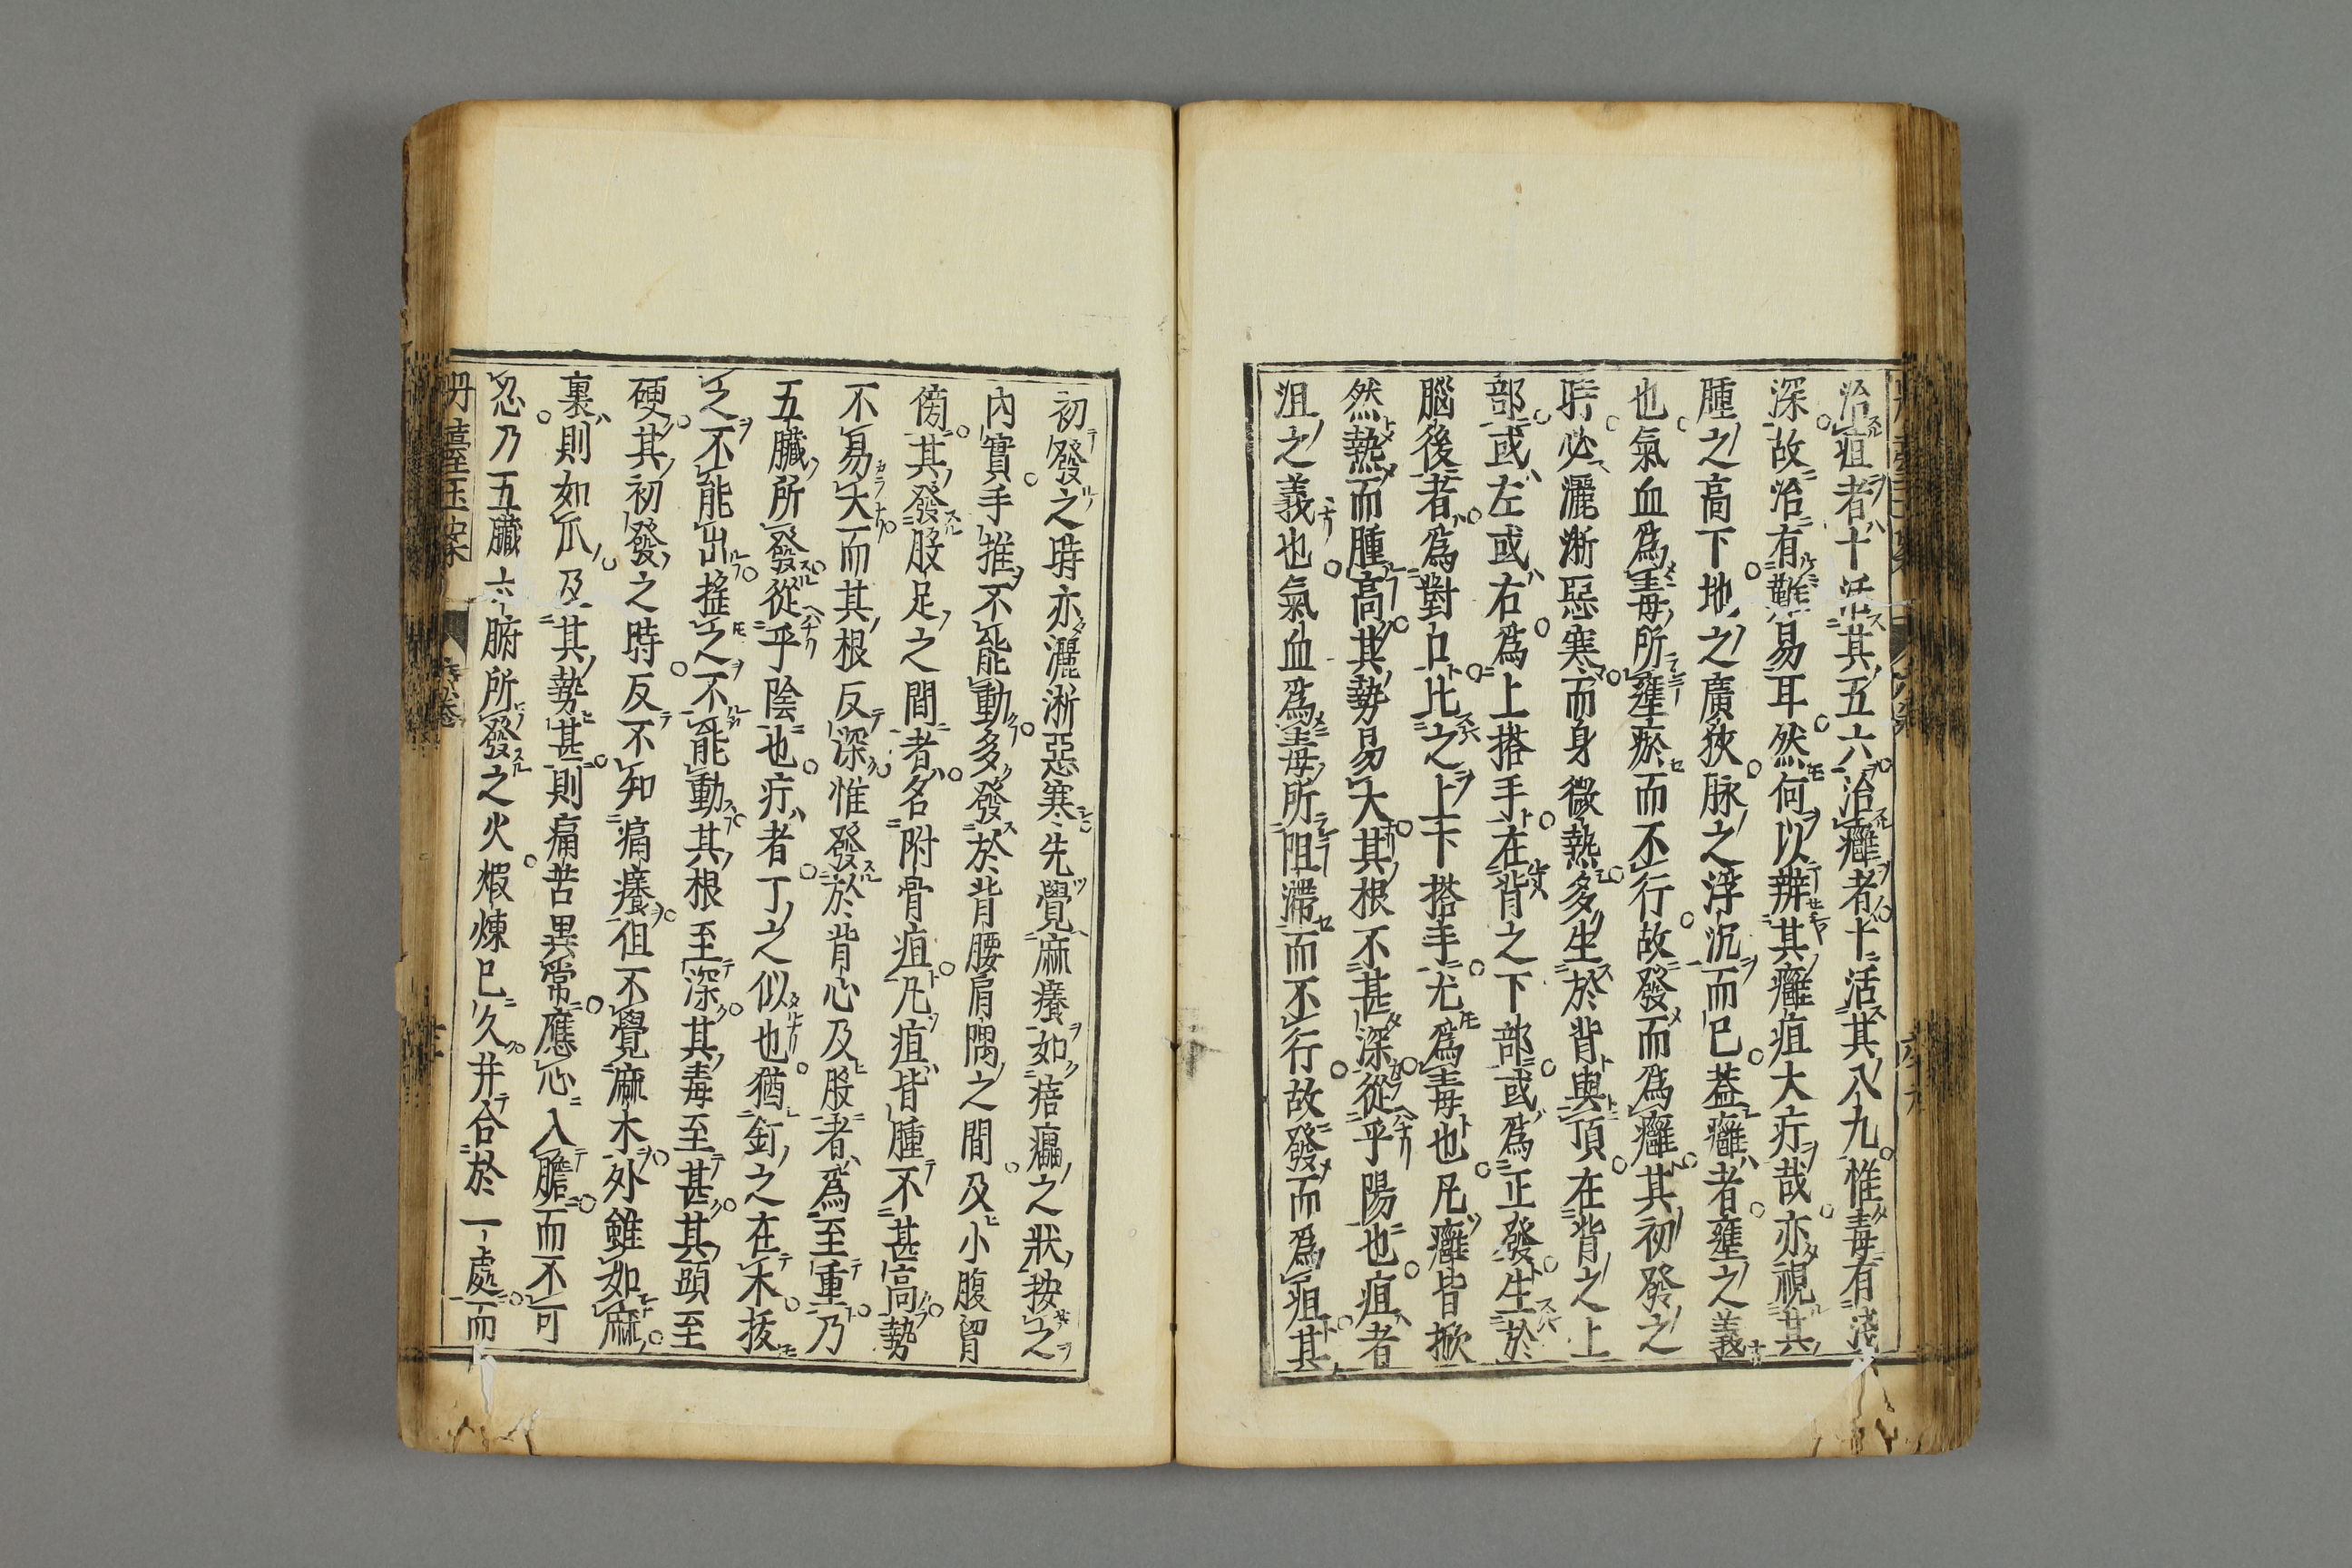 治疽者十活其五六治癰者十活其八九惟毒有淺
深故治有難易耳然何以辨其癰疽大疔哉亦視其
腫之高下地之廣狹脉之浮沉而巳蓋癰者壅之義
也氣血爲毒所壅瘀而不行故發而爲癰其初發之
時必灑淅惡寒而身微熱多生於背與頂在背之上
部或左或右爲上搭手在背之下部或爲正發生於
腦後者爲對口比之上下搭手尤爲毒也凡癰皆掀
然熱而腫高其勢易大其根不甚深從乎陽也疽者
沮之義也氣血爲毒所阻滯而不行故發而爲疽其
初發之時亦灑淅惡寒先覺麻癢如痦𤺺之狀按之
內實手推不能動多發於背腰肩隅之間及小腹胃
傍其發股足之間者名附骨疽凡疽皆腫不甚高勢
不易大而其根反深惟發於背心及股者爲至重乃
五臟所發從乎陰也疔者丁之似也猶釘之在木拔
之不能出搖之不能動其根至深其毒至甚其頭至
硬其初發之時反不知痛癢但不覺麻木外雖如麻
裏則如爪及其勢甚則痛苦異常應心入膽而不可
忍乃五臟六腑所發之火煆煉巳久并合於一處而
丹臺玉案 六卷